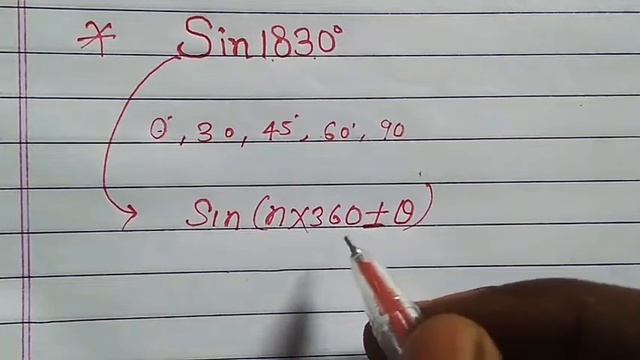 * Sin1830°
0°, 30, 45°, 60°, 90
Sin (n×360±θ)